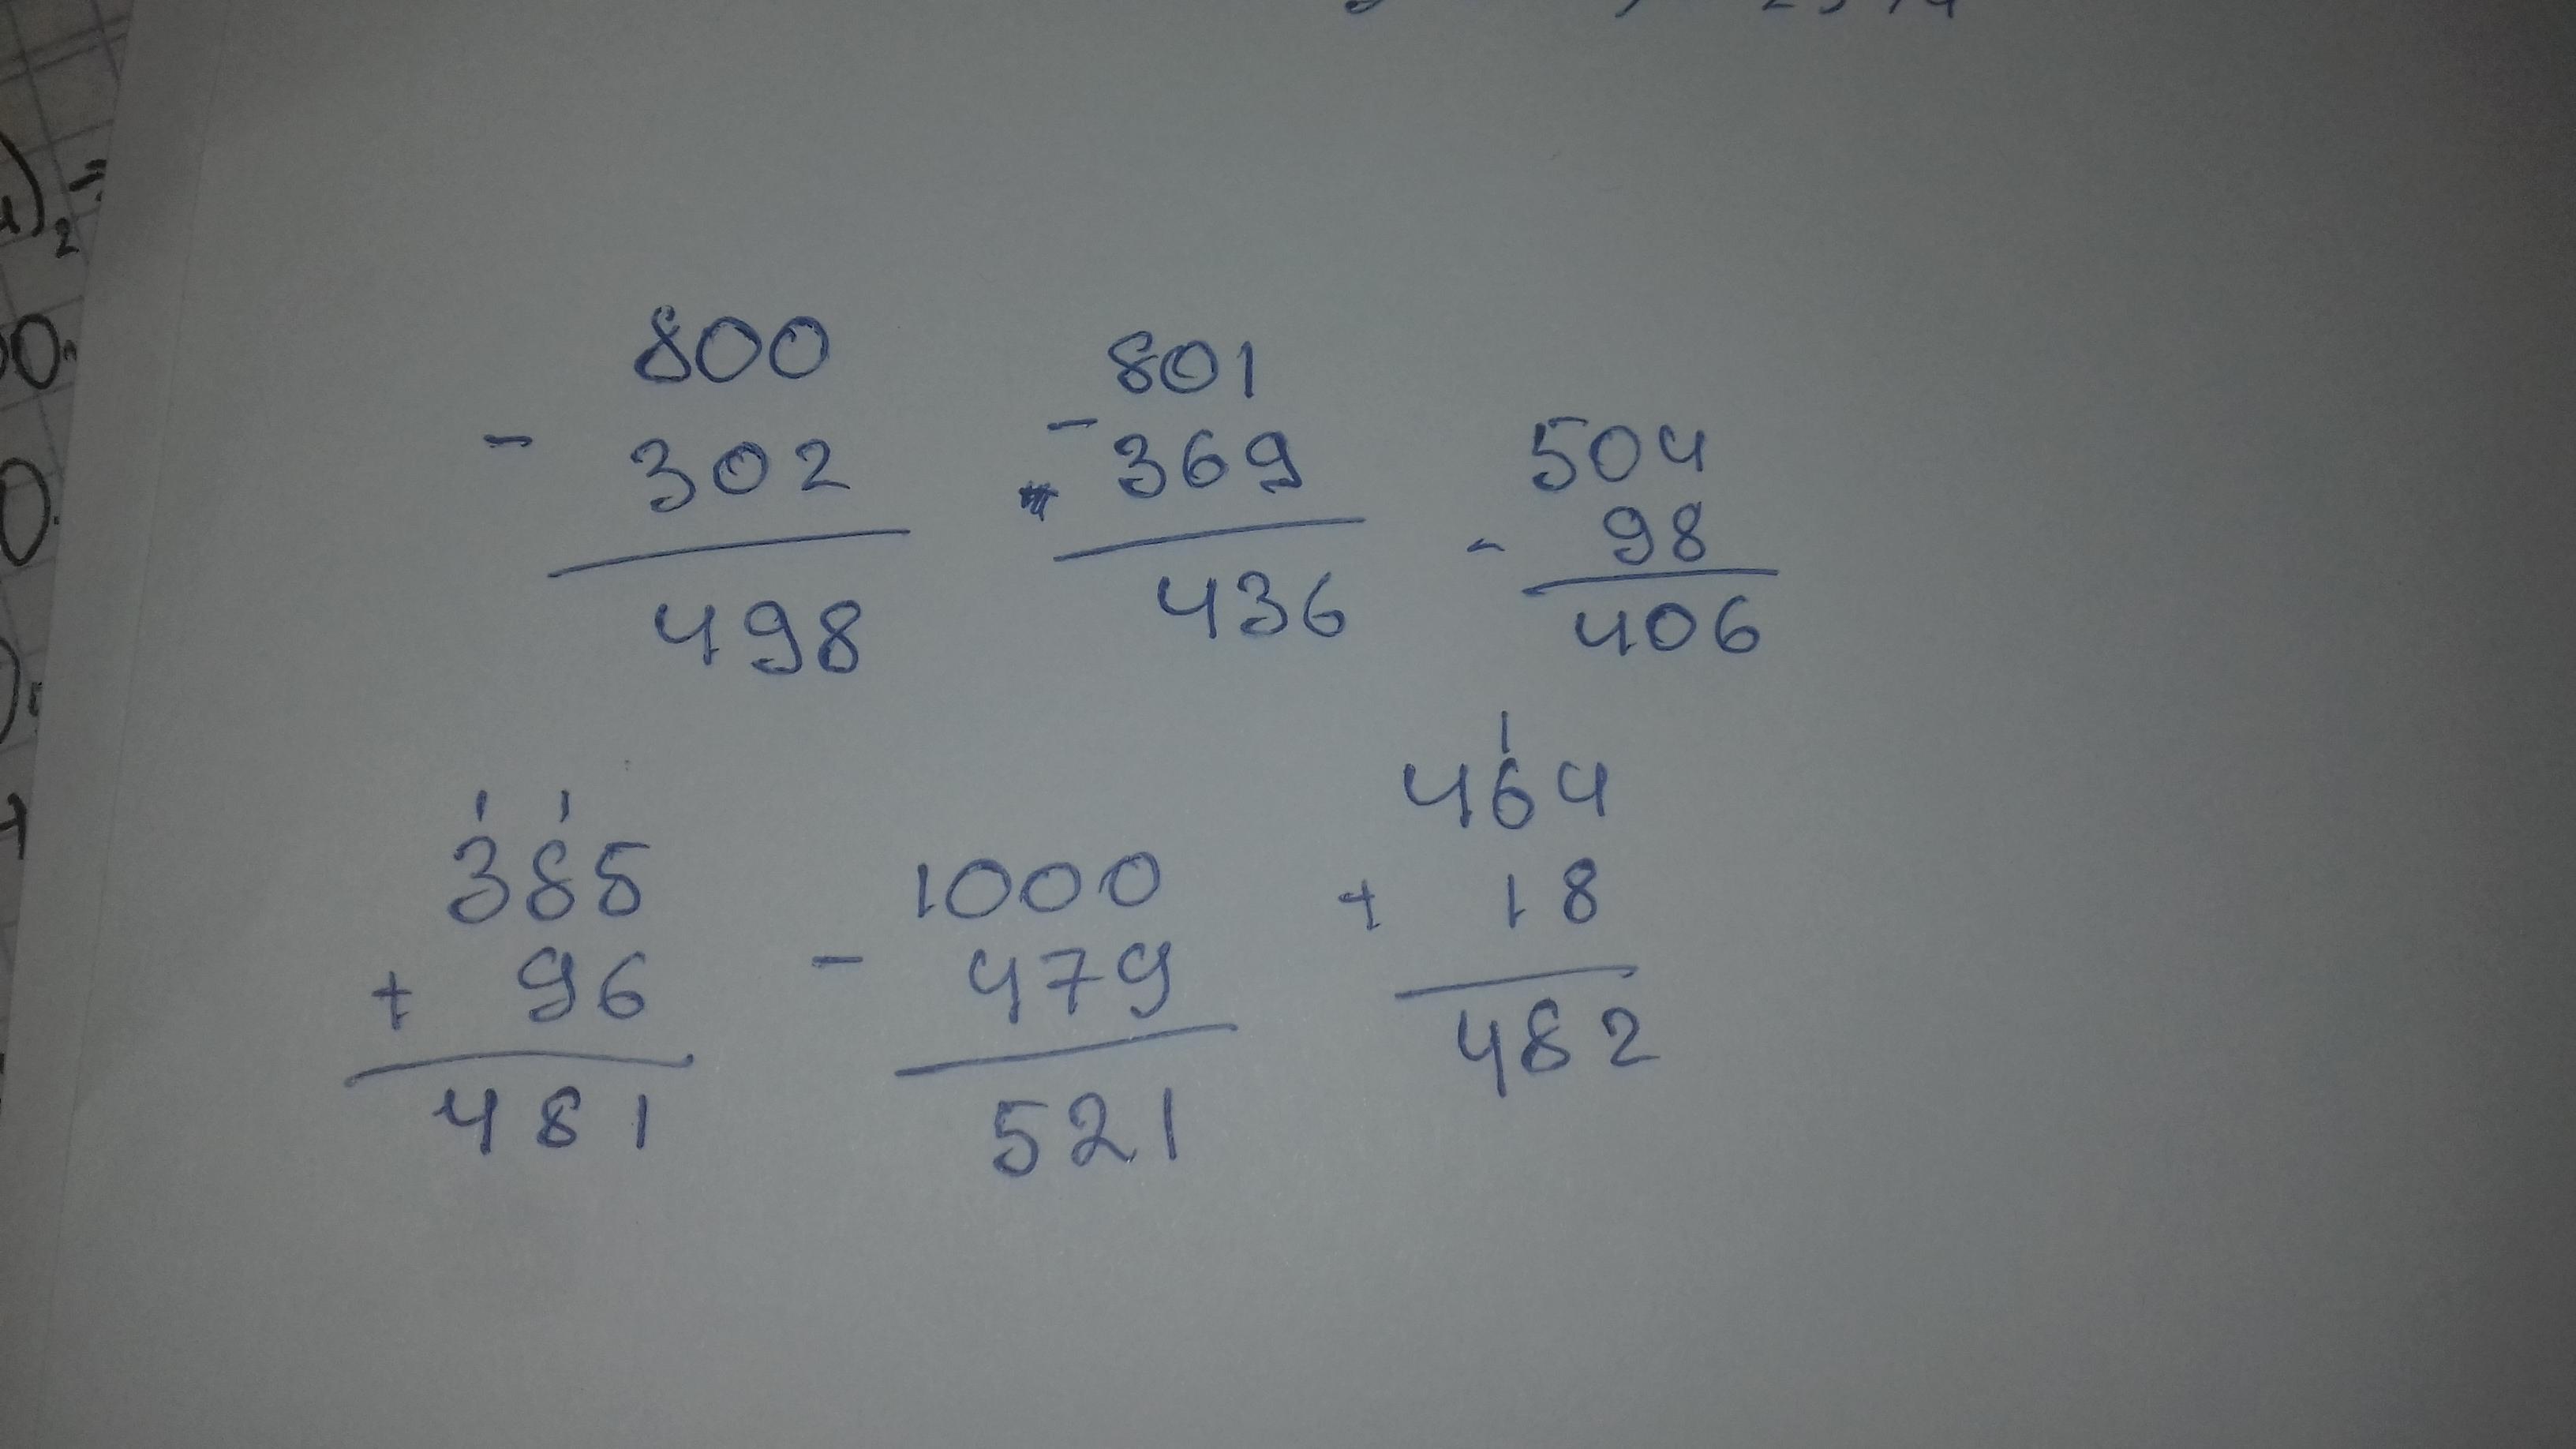 800
- 302
498
801
- 369
436
504
- 98
406
1 1
385
+ 96
481
1000
- 479
521
1
464
+ 18
482